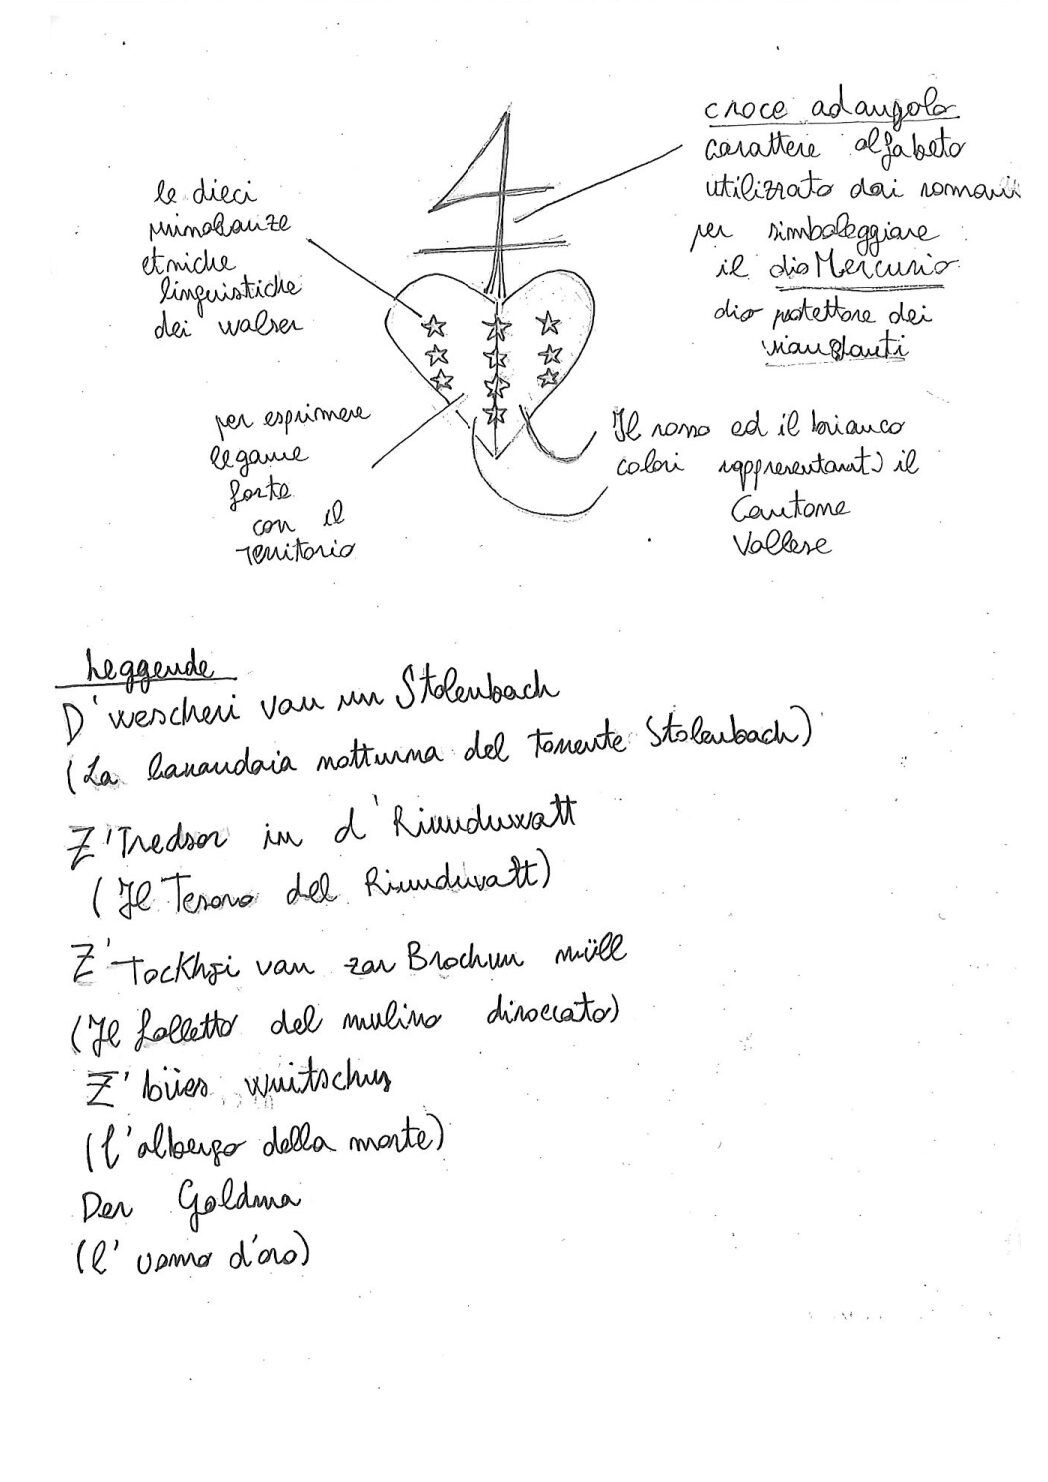 croce ad angolo
carattere alfabeto
utilizzato dai romani
per simboleggiare
il dio Mercurio
dio protettore dei
viandanti
le dieci
minoranze
etniche
linguistiche
dei walser
per esprimere
legame
forte
con il
territorio
Il rosso ed il bianco
colori rappresentanti il
Cantone
Vallese
Leggende
D'wescheri van un Stolenbach
(La lavandaia notturna del torrente Stolenbach)
Z'Tredsor in d'Rimduwatt
(Il Tesoro del Rimduwatt)
Z'Tockhji van zar Brochun müll
(Il folletto del mulino diroccato)
Z'bües
(l'albergo della morte)
Der Goldma
(l'uomo d'oro)